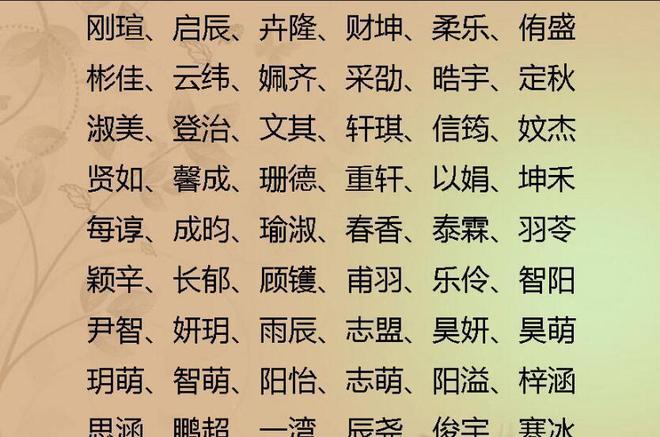 刚瑄、启辰、卉隆、财坤、柔乐、侑盛
彬佳、云纬、姵齐、采劭、晧宇、定秋
淑美、登治、文其、轩琪、信筠、妏杰
贤如、馨成、珊德、重轩、以娟、坤禾
每谆、成昀、瑜淑、春香、泰霖、羽苓
颖辛、长郁、顾镬、甫羽、乐伶、智阳
尹智、妍玥、雨辰、志盟、昊妍、昊萌
玥萌、智萌、阳怡、志萌、阳溢、梓涵
思涵、鹏超、一湾、辰尧、俊宇、寒冰